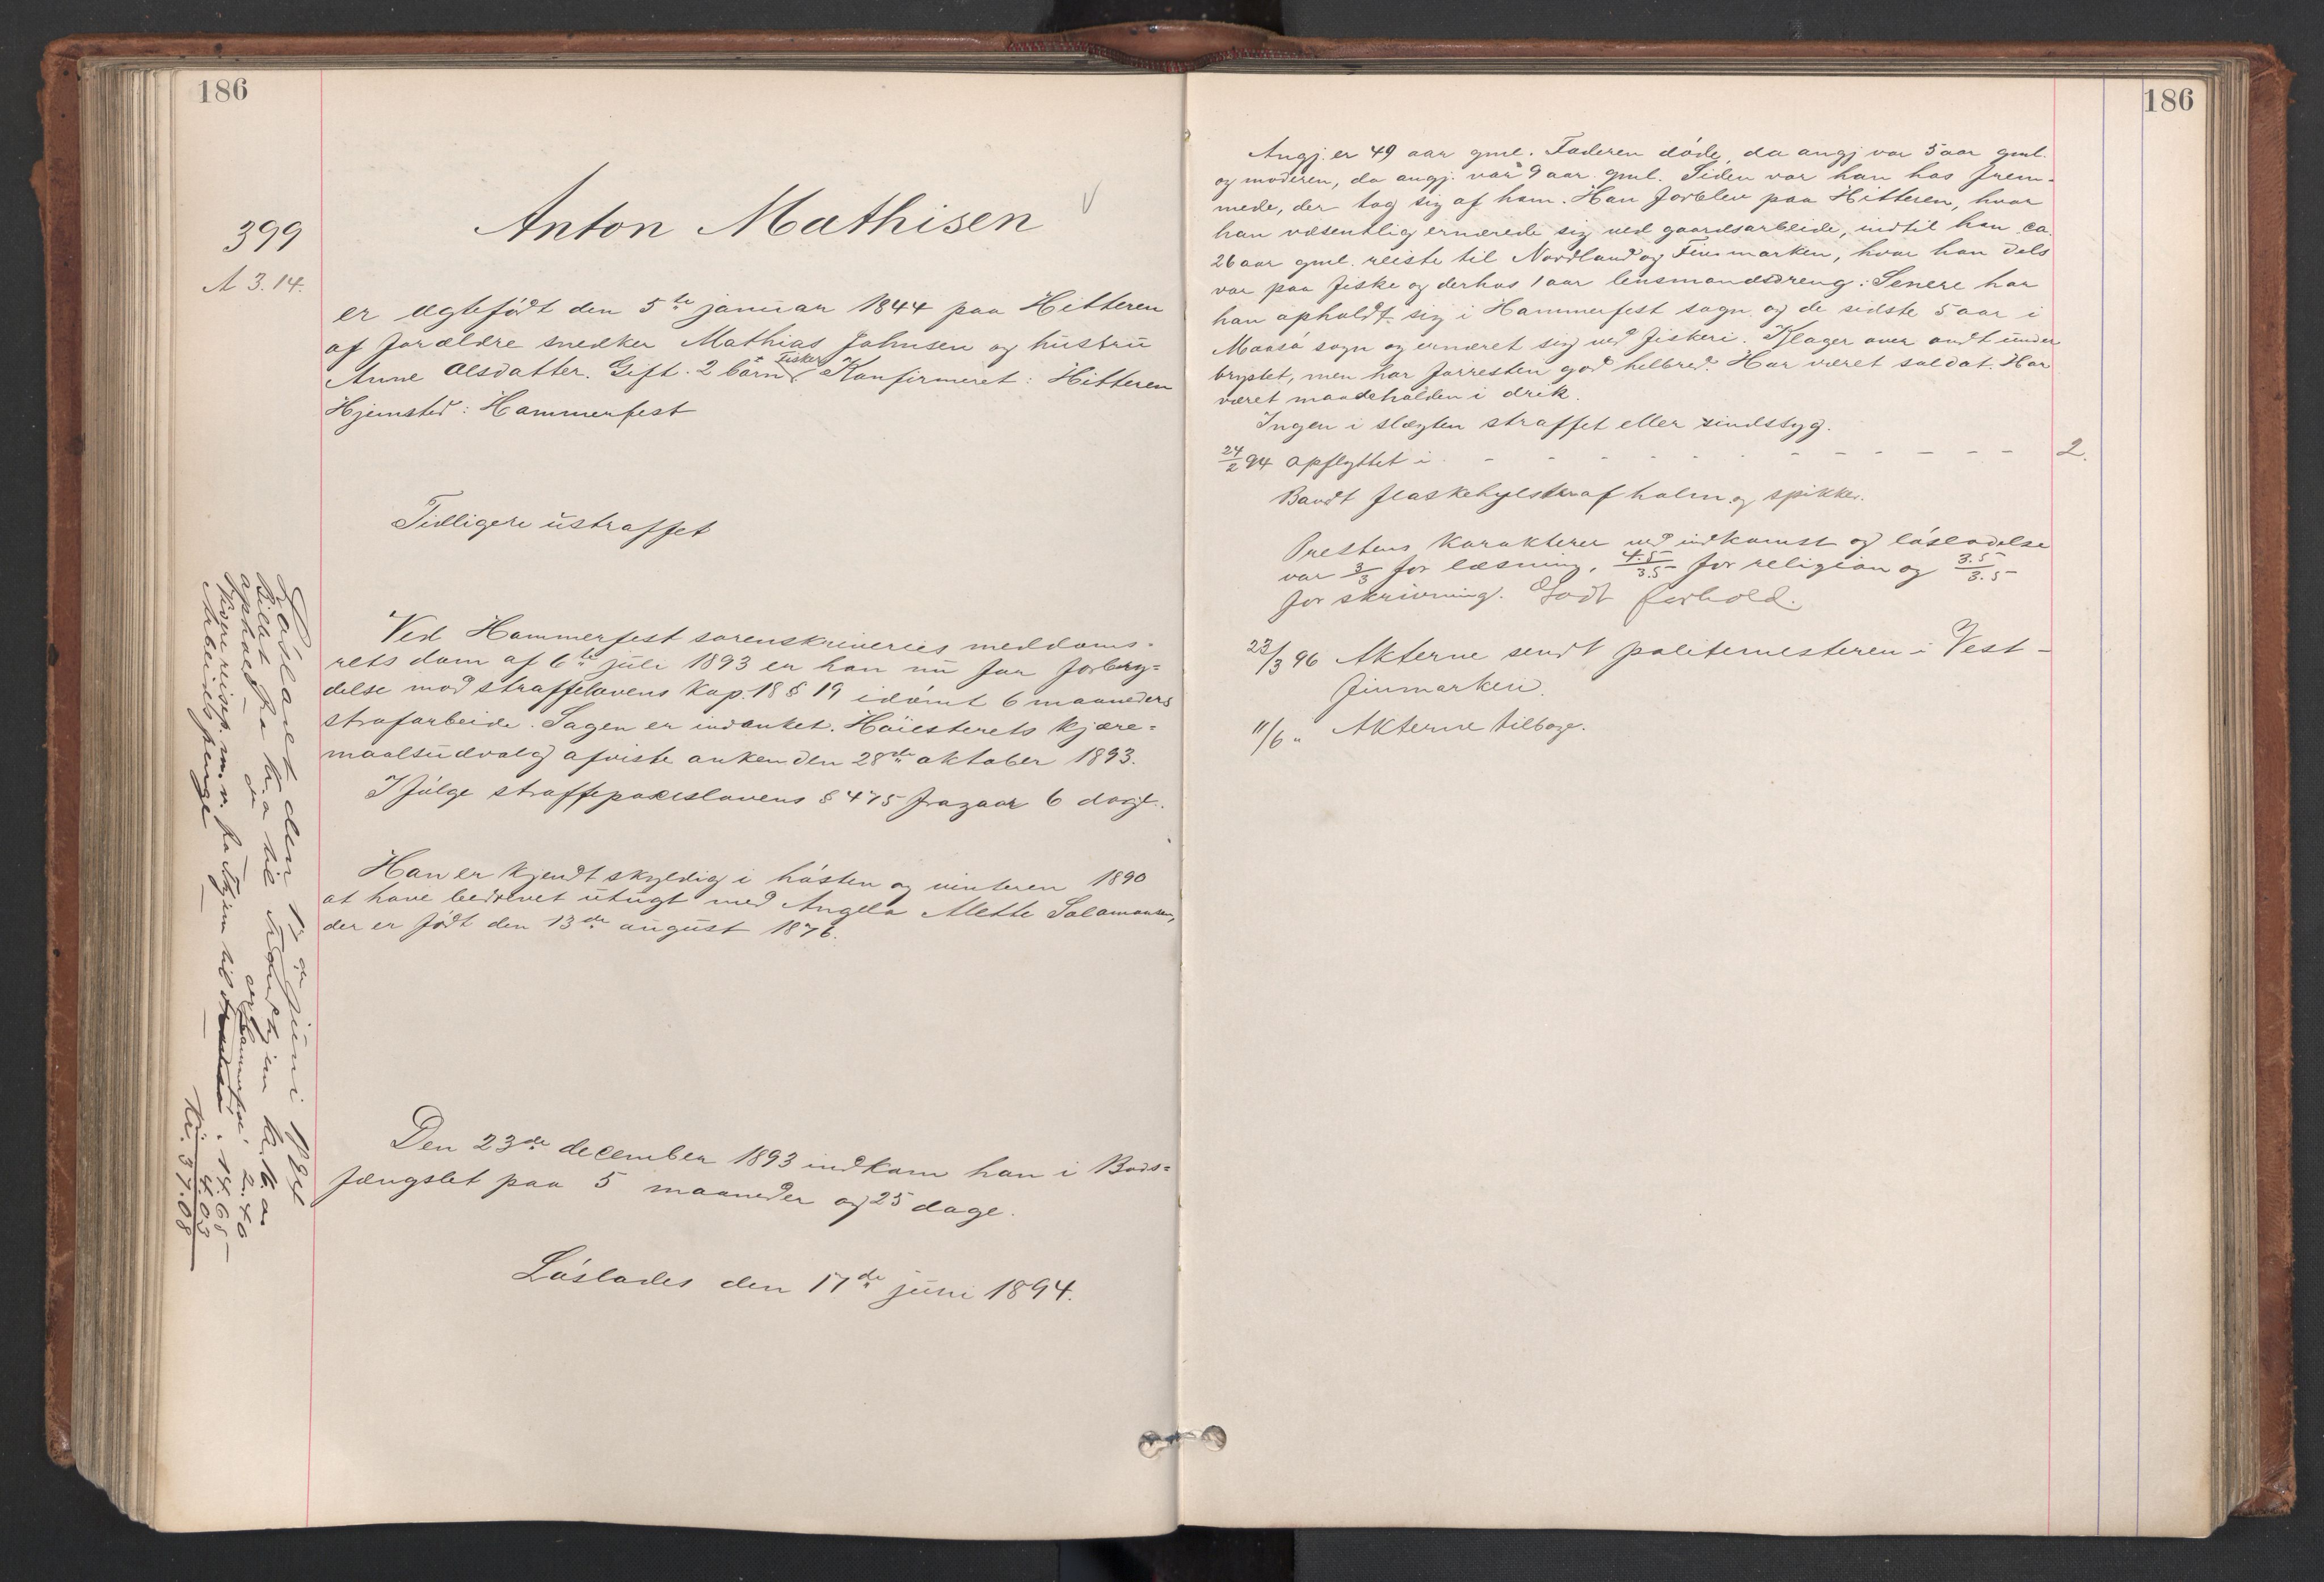 186
399
A 3.14.
Anton Mathisen
er ægtefødt den 5te januar 1844 paa Hitteren
af forældre snedker Mathias Johnsen og hustru
Fisker
Anne Olsdatter. Gift. 2 børn. Konfirmeret: Hitteren
Hjemsted: Hammerfest
Tidligere ustraffet
Ved Hammerfest sorenskriveries meddoms-
rets dom af 6te juli 1893 er han nu for forbry=
delse mod straffelovens Kap. 18 § 19 idømt 6 maaneders
strafarbeide. Sagen er indanket. Høiesterets kjære=
maalsudvalg afviste anken den 28de oktober 1893.
Ifølge straffeproceslovens § 475 fragaar 6 dage.
Han er kjendt skyldig i høsten og vinteren 1890
at have bedrevet utugt med Angela Alette Salamonsen,
der er født den 13de august 1876.
Den 23de december 1893 indkom han i Bods=
fængslet paa 5 maaneder og 25 dage.
Løslades den 17de juni 1894.
Løsladt den 17de juni 1894
Billet fra Kr.a til Trondhjem kr. 16.00
ophold do og Hammerfest 2.40
Videre reisep. m.v. fra Thjem til 14.65
Arbeidspenge 4.03
Kr. 37.08
186
Angj. er 49 aar gml. Faderen døde, da angj var 5 aar gml.
og moderen, da angj. var 9 aar gml. Siden var han hos frem-
mede, der tog sig af ham. Han forblev paa Hitteren, hvor
han væsentlig ernærede sig ved gaardsarbeide, indtil han ca.
26 aar gml. reiste til Nordland og Finmarken, hvor han dels
var paa fiske og derhos 1 aar lensmandsdreng. Senere har
han opholdt sig i Hammerfest sogn og de sidste 5 aar i
Maasø sogn og ernæret sig ved fiskeri. Klager over ondt under
brystet, men har forresten god helbred. Har været soldat. Har
været maadeholden i drik.
Ingen i slægten straffet eller sindssyg.
24/2 94 Opflyttet i - - - - - - - - - - - - 2.
Bandt flaskehylstre af halm og spikker.
Prestens karakterer ved indkomst og løsladelse
var 3/3 for læsning, 4.5/3.5 for religion og 3.5/3.5
for skrivning. Godt forhold.
23/3 96 Akterne sendt politimesteren i Vest-
finmarken.
11/6 " Akterne tilbage.